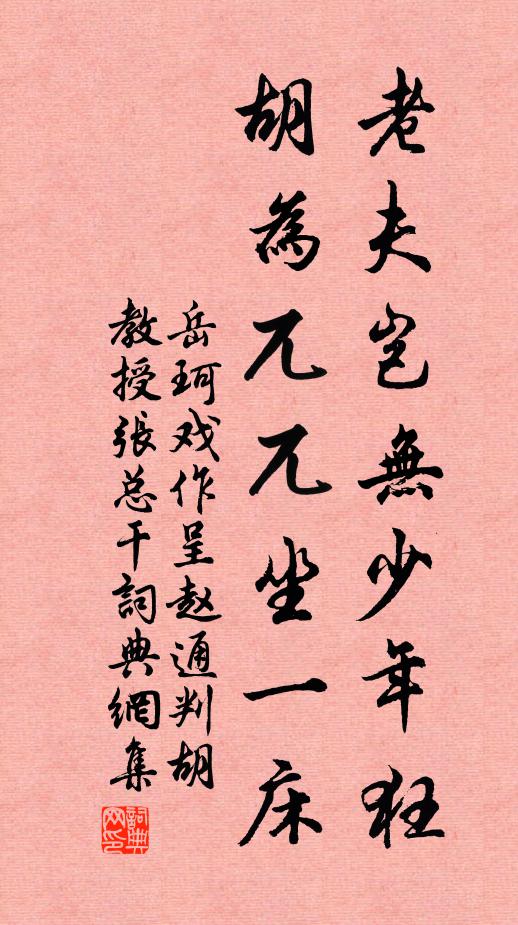 老夫岂無少年狂
胡為兀兀坐一床
岳珂戏作呈赵通判胡
教授張总干詞典網集
詞典
网印